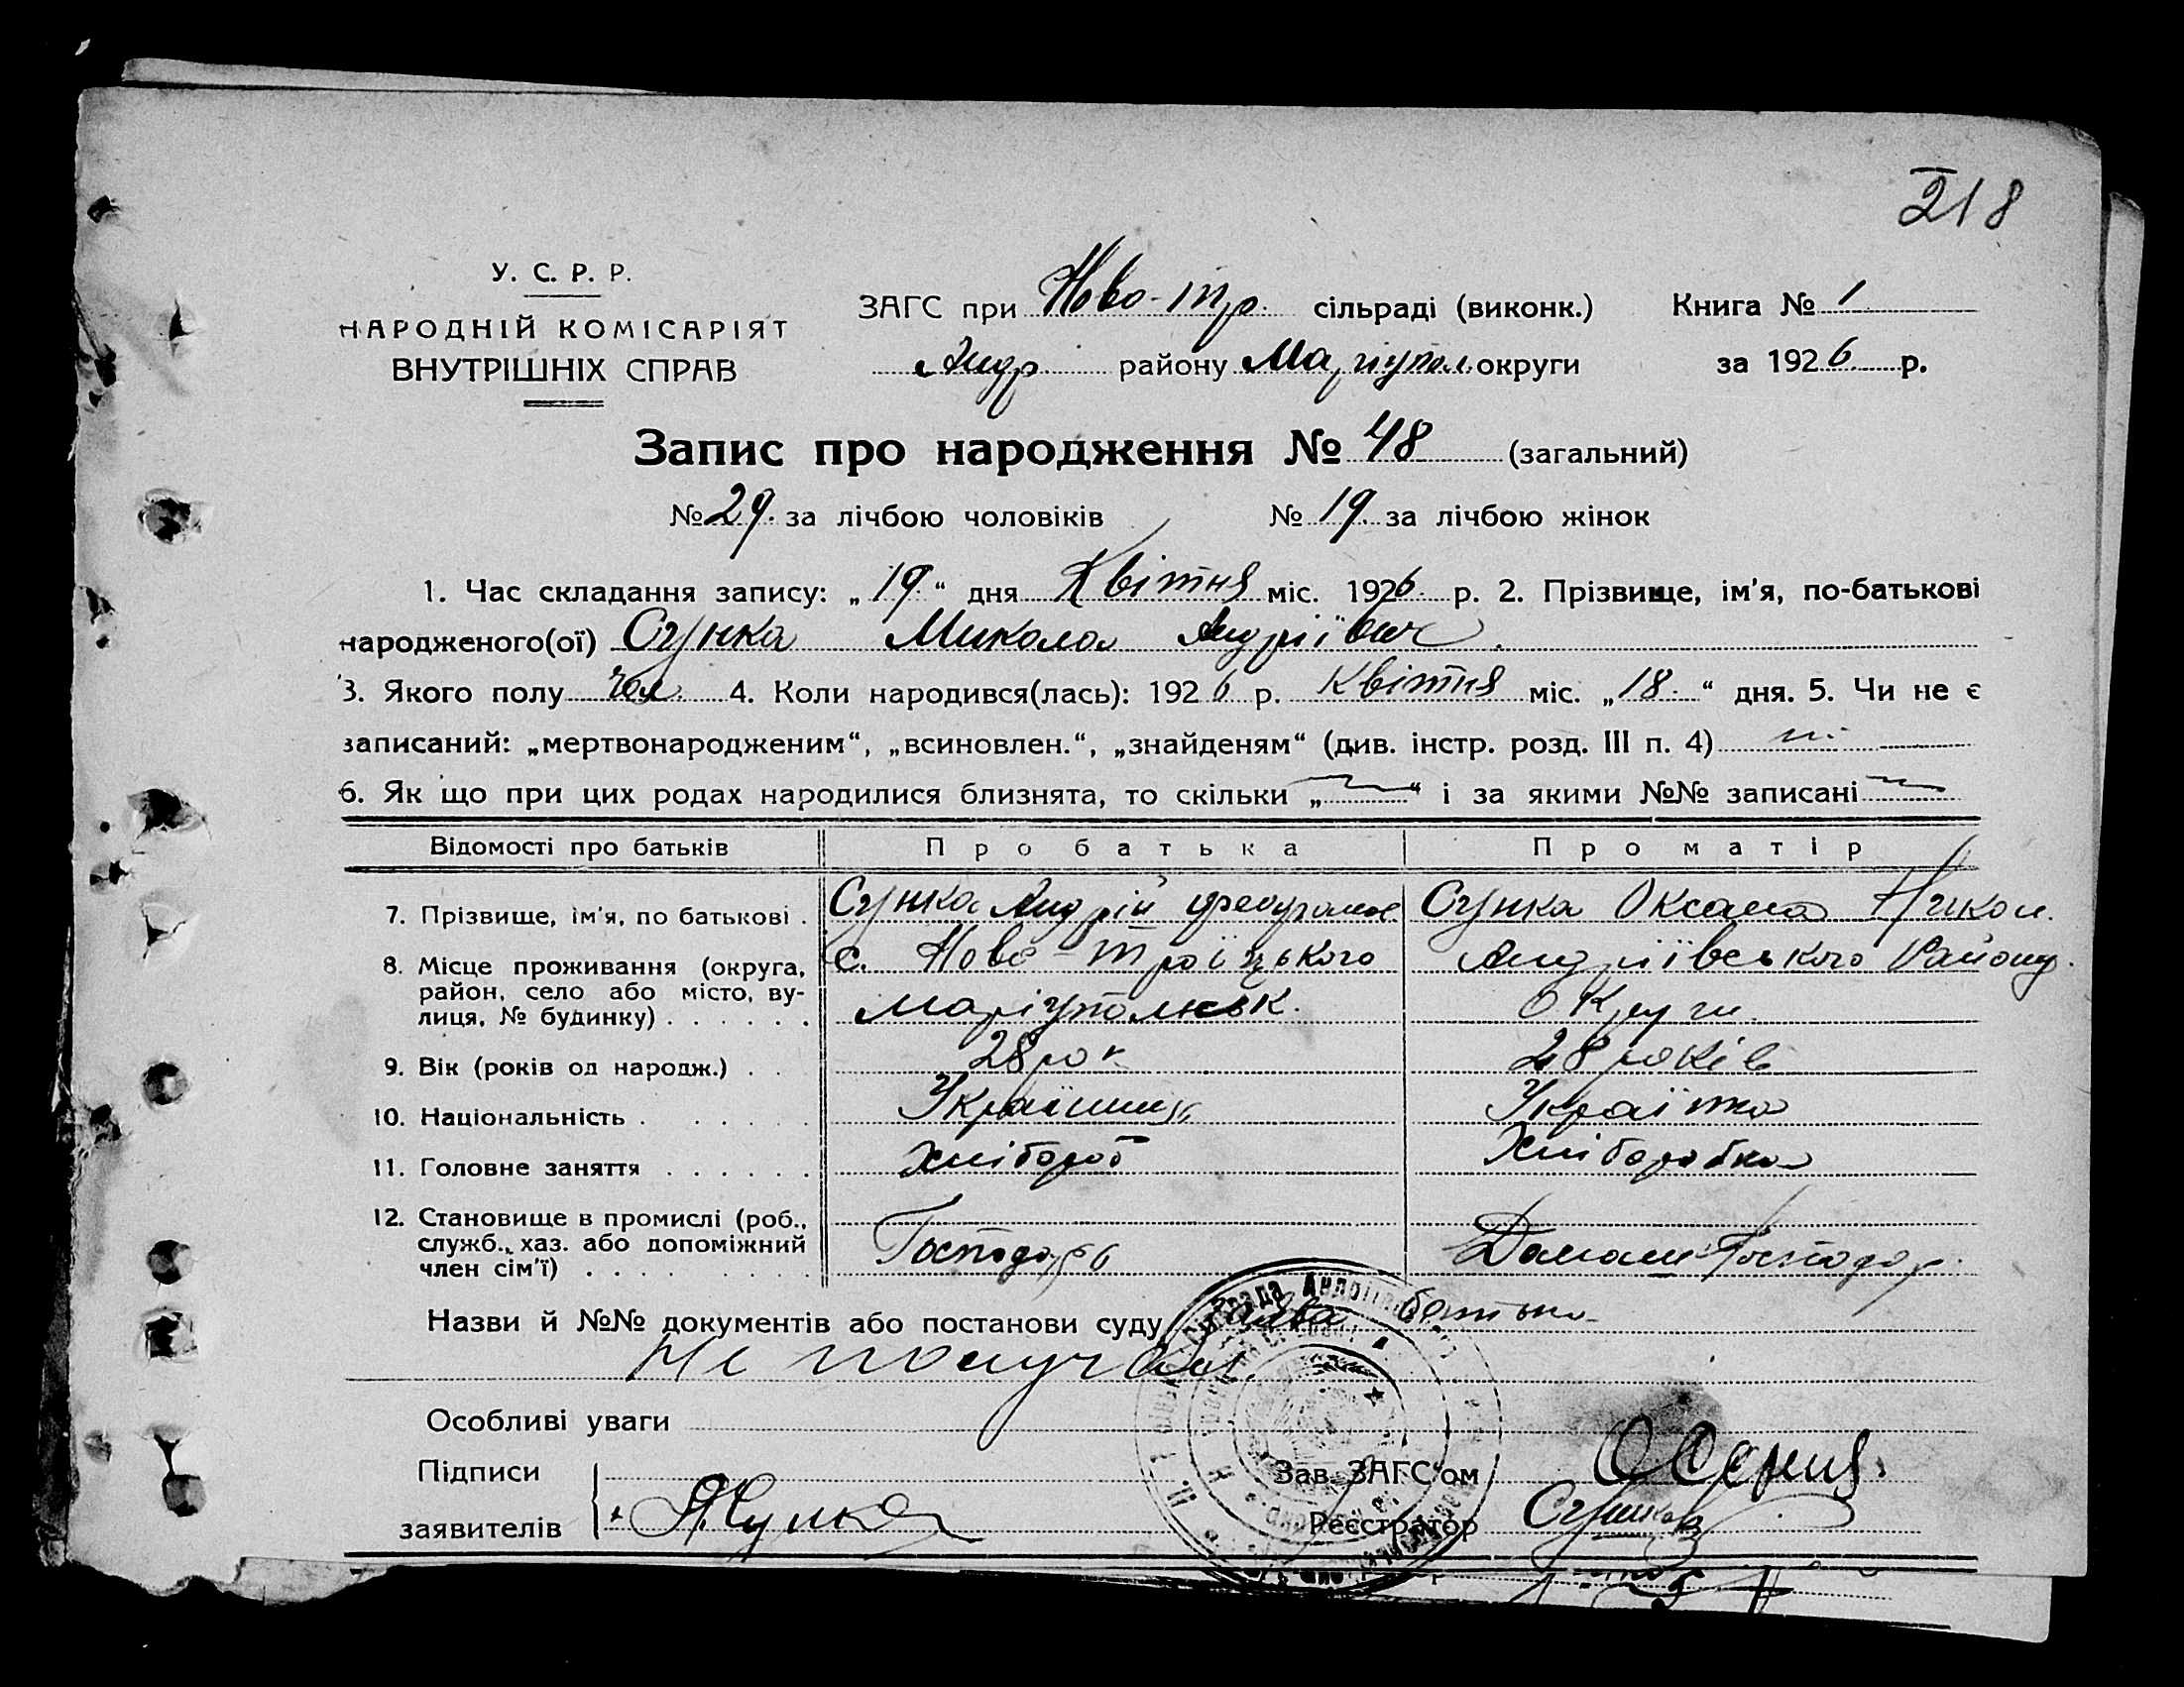 218
У. С. Р. Р.
НАРОДНІЙ КОМІСАРІЯТ
ВНУТРІШНІХ СПРАВ
ЗАГС при Ново-тр. сільраді (виконк.) Книга № 1
Андр району Маріупол. округи за 1926 р.
Запис про народження № 48 (загальний)
№ 29. за лічбою чоловіків № 19. за лічбою жінок
1. Час складання запису: „19.“ дня Квітня міс. 1926. р. 2. Прізвище, ім'я, по-батькові
народженого(ої) Сунка Микола Андріївич.
3. Якого полу чол. 4. Коли народився(лась): 1926 р. Квітня міс. „18.“ дня. 5. Чи не є
записаний: „мертвонародженим“, „всиновлен.“, „знайденям“ (див. інстр. розд. III п. 4)
6. Як що при цих родах народилися близнята, то скільки „ “ і за якими №№ записані
Відомості про батьків Про батька Про матір
7. Прізвище, ім'я, по батькові . Сунка Андрій Сунка Оксана
8. Місце проживання (округа, район, село або місто, вулиця, № будинку) . . . . . . с. Ново-Троїцького Андріївського Району.
Маріупольськ. Округи
9. Вік (років од народж.) . . 28 рок 28 років
10. Національність . . . . . Українець Українка
11. Головне заняття . . . . . . Хлібороб Хліборобка
12. Становище в промислі (роб., служб., хаз. або допоміжний член сім'ї) . . . . . . . . Господарь Домашн Господар.
Назви й №№ документів або постанови суду Заява батька
Не получал.
Особливі уваги
Підписи
заявителів
А Сунка
Зав. ЗАГС'ом
Реєстратор